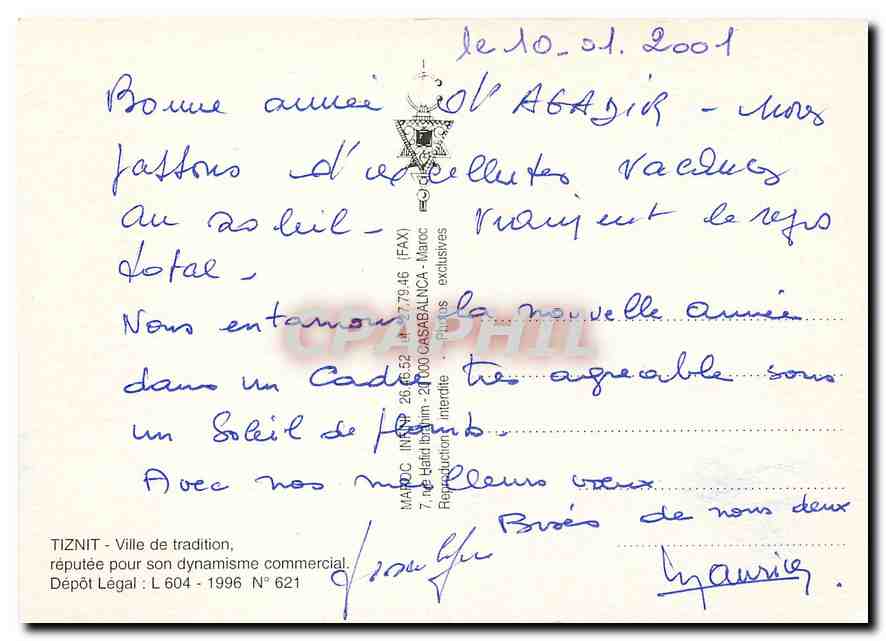 le 10-01.2001
Bonne année d'AGADIR - Nous
passons d'excellentes vacances
au soleil - vraiment le repos
total -
Nous entamons la nouvelle année
dans un cadre très agreable sous
un soleil de plomb.
Avec nos meilleurs vœux
Bises de nous deux
Maurice.
TIZNIT - Ville de tradition,
réputée pour son dynamisme commercial.
Dépôt Légal : L 604 - 1996 N° 621
MAROC 26 27.79.46 (FAX)
7, rue Hafid Ibrahim - 20 000 CASABALNCA - Maroc
Reproduction interdite - Photos exclusives
CPAPHIL